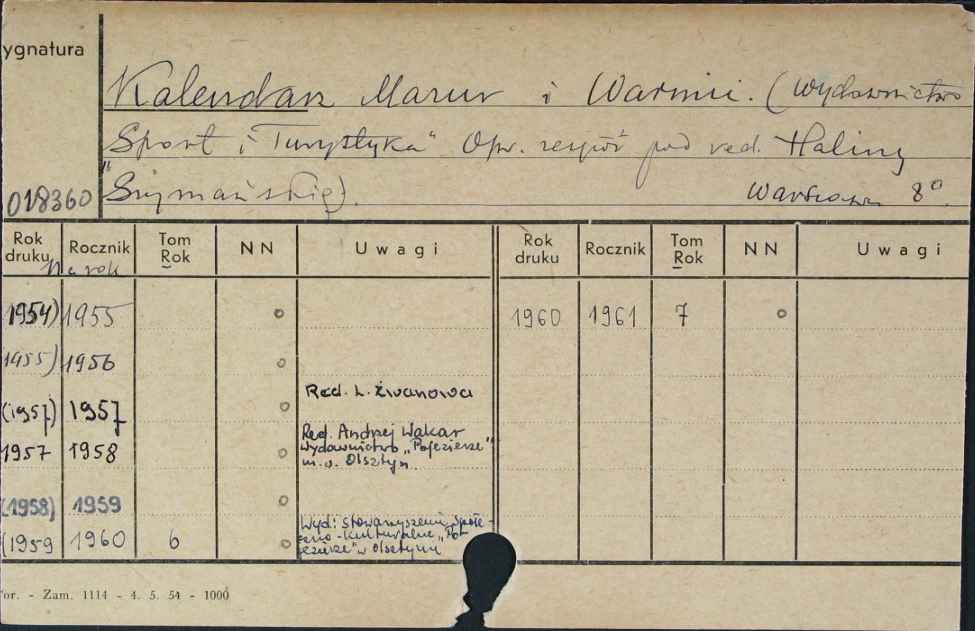 ygnatura
Kalendarz Mazur i Warmii. (Wydawnictwo
„Sport i Turystyka" Opr. zespół pod red. Haliny
Szymańskiej). Warszawa 8°.
018360
Rok druku Rocznik Tom Rok NN Uwagi Rok druku Rocznik Tom Rok NN Uwagi
Na rok
(1954) 1955 o 1960 1961 7 o
1955) 1956 o
Red. L.
(1957) 1957 o
Red. Andrzej Wakar
1957 1958 o Wydawnictwo „Pojezierze"
Olsztyn.
(1958) 1959 o
Wyd: Stowarzyszenie Społe-
czno-Kulturalne „Po-
(1959 1960 6 o jezierze" w Olsztynie
or. - Zam. 1114 - 4. 5. 54 - 1000